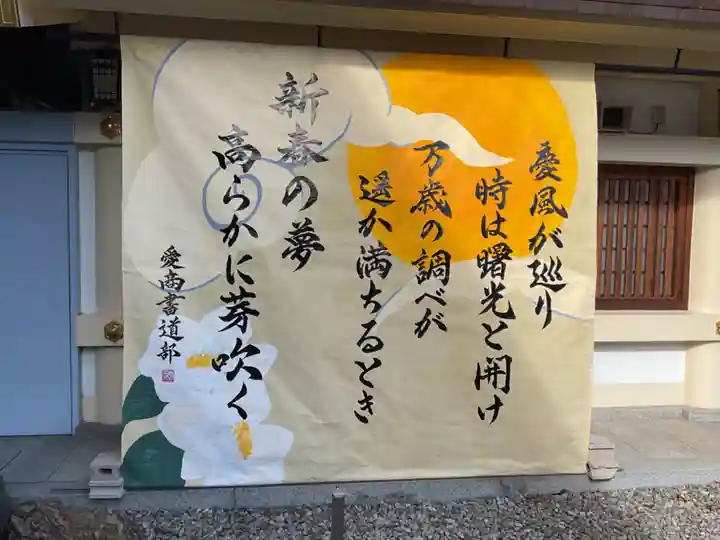 憂風が巡り
時は曙光と開け
万歳の調べが
遥か満ちるとき
新春の夢
高らかに芽吹く
愛商書道部